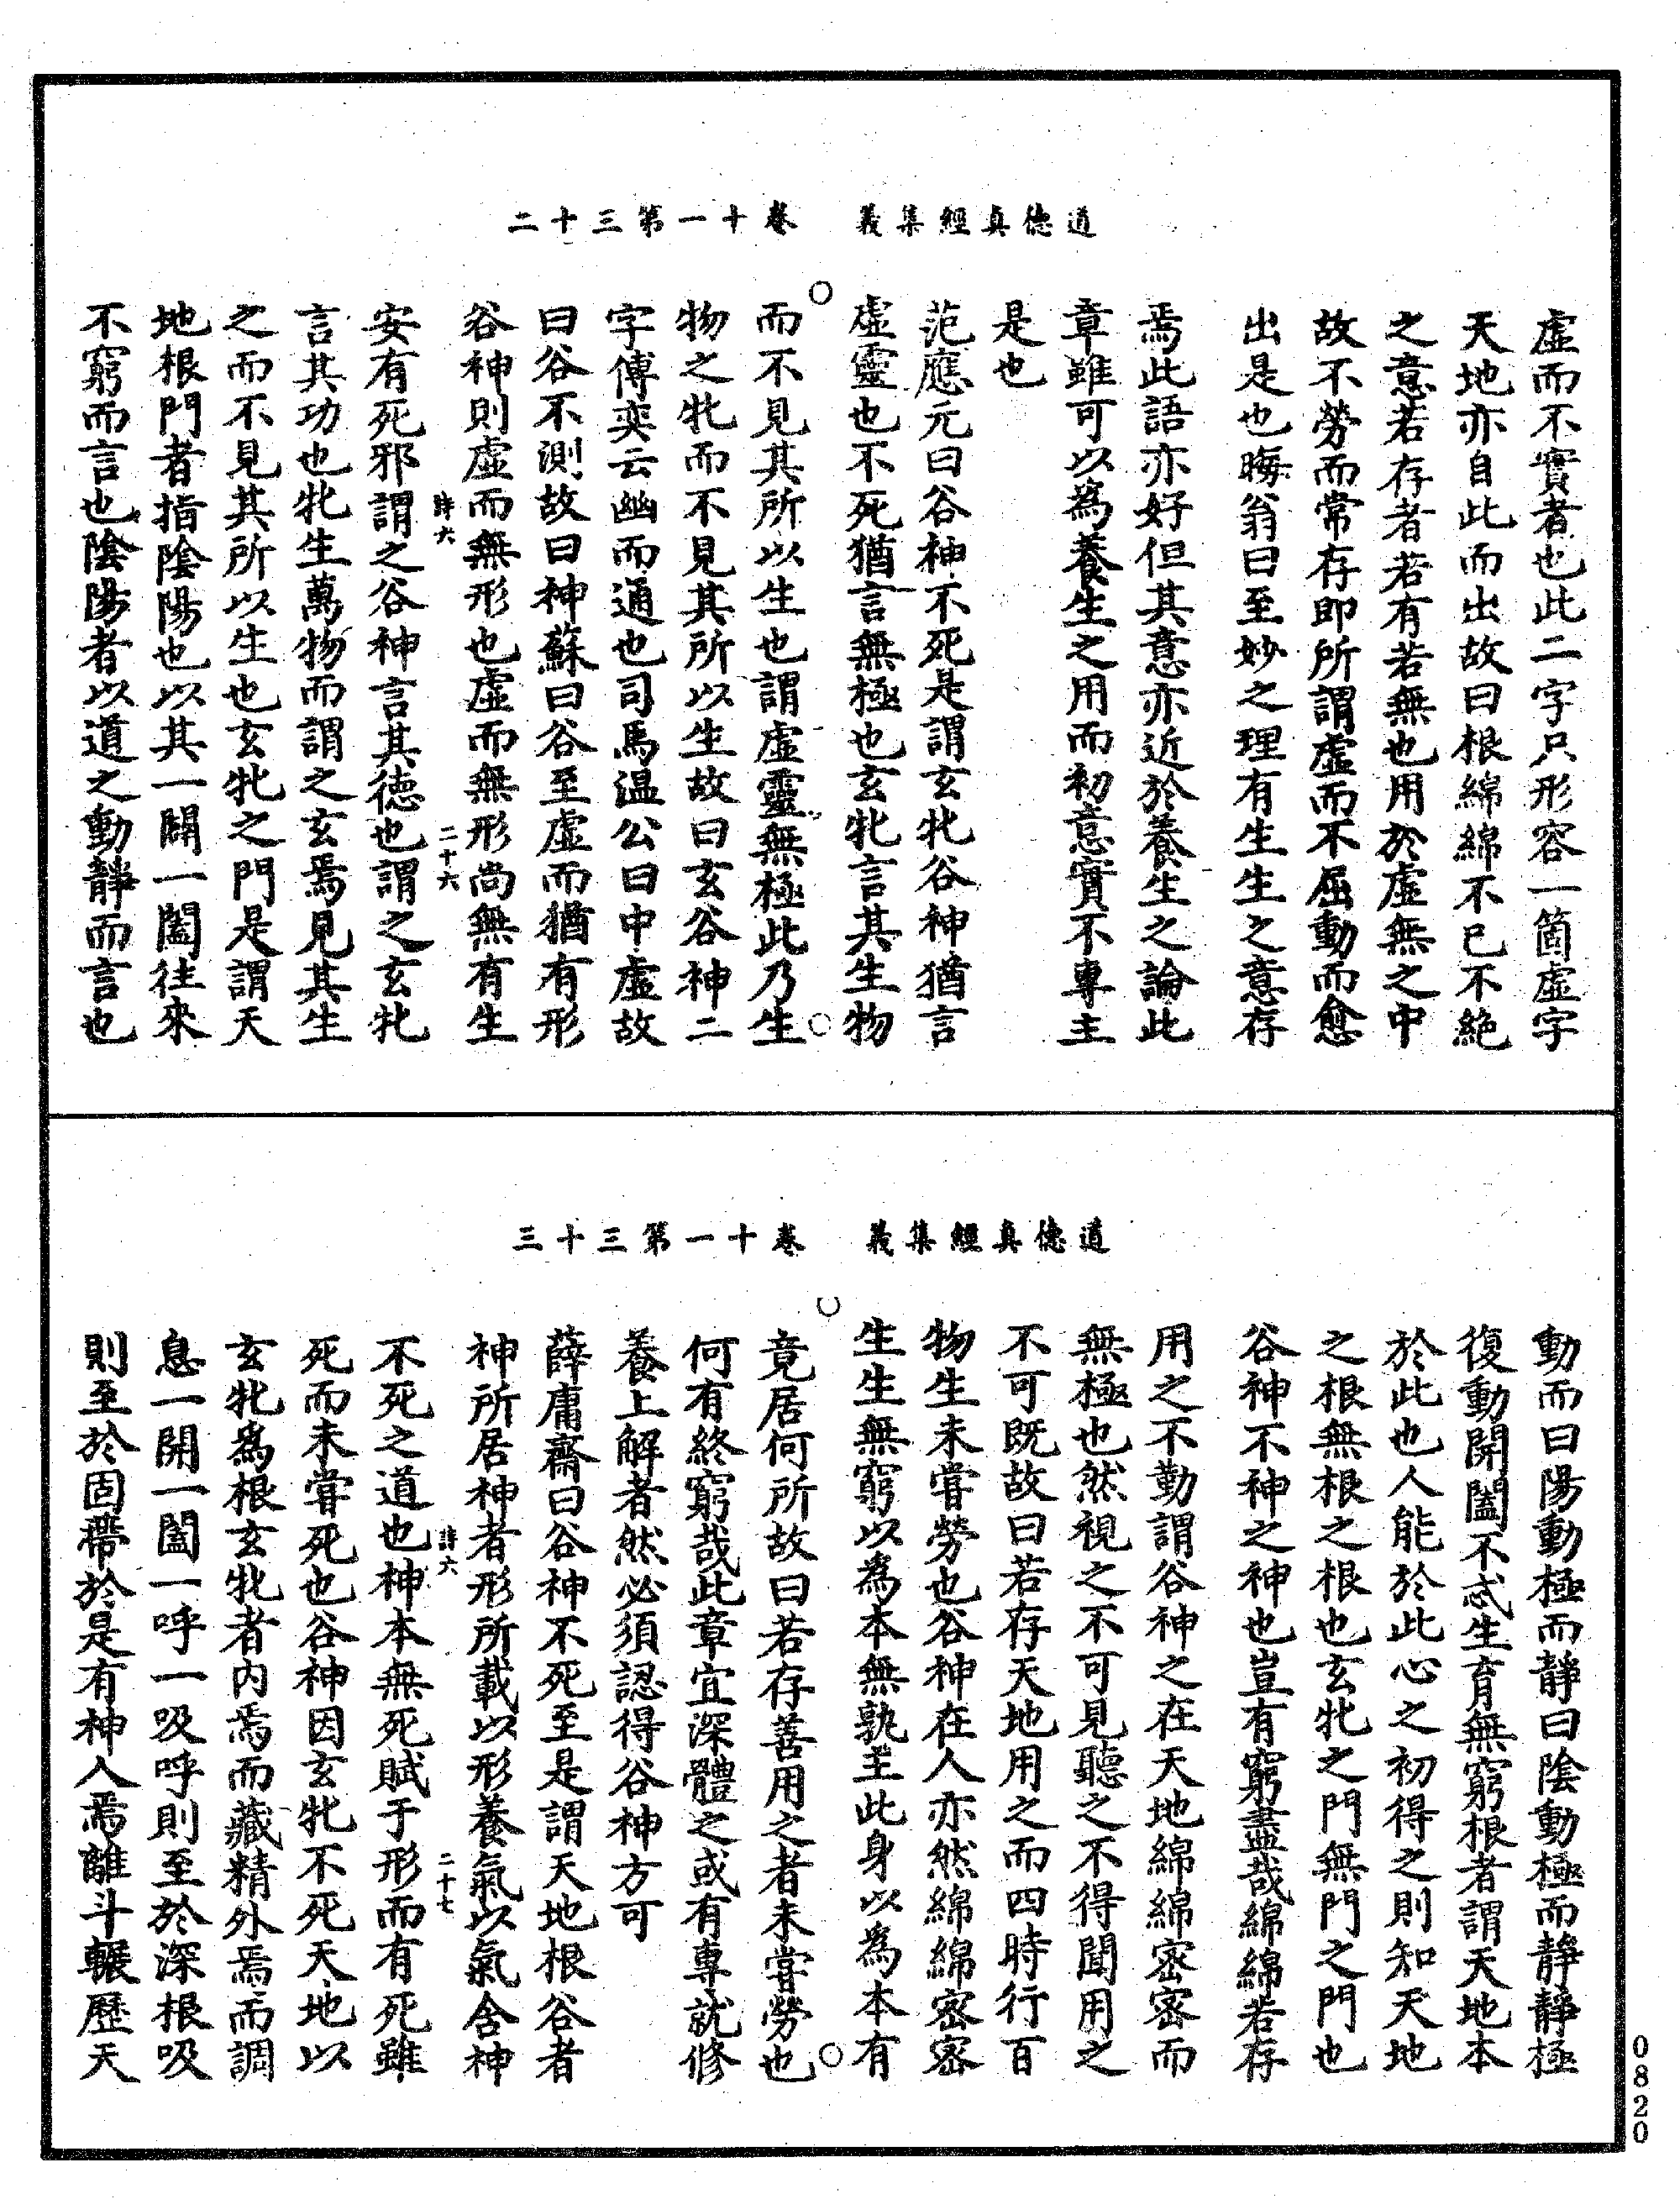 道德真經集義　卷十一第三十二
虛而不實者也此二字只形容一箇虛字
天地亦自此而出故曰根綿綿不已不絕
之意若存者若有若無也用於虛無之中
故不勞而常存即所謂虛而不屈動而愈
出是也晦翁曰至妙之理有生生之意存
焉此語亦好但其意亦近於養生之論此
章雖可以為養生之用而初意實不專主
是也
范應元曰谷神不死是謂玄牝谷神猶言
虛靈也不死猶言無極也玄牝言其生物
而不見其所以生也謂虛靈無極此乃生
物之牝而不見其所以生故曰玄谷神二
字傅奕云幽而通也司馬温公曰中虛故
曰谷不測故曰神蘇曰谷至虛而猶有形
谷神則虛而無形也虛而無形尚無有生
詩六　二十六
安有死邪謂之谷神言其德也謂之玄牝
言其功也牝生萬物而謂之玄焉見其生
之而不見其所以生也玄牝之門是謂天
地根門者指陰陽也以其一闢一闔往來
不窮而言也陰陽者以道之動靜而言也
道德真經集義　卷十一第三十三
動而曰陽動極而靜曰陰動極而靜靜極
復動開闔不忒生育無窮根者謂天地本
於此也人能於此心之初得之則知天地
之根無根之根也玄牝之門無門之門也
谷神不神之神也豈有窮盡哉綿綿若存
用之不勤謂谷神之在天地綿綿密密而
無極也然視之不可見聽之不得聞用之
不可既故曰若存天地用之而四時行百
物生未嘗勞也谷神在人亦然綿綿密密
生生無窮以為本無孰主此身以為本有
竟居何所故曰若存善用之者未嘗勞也
何有終窮哉此章宜深體之或有專就修
養上解者然必須認得谷神方可
薛庸齋曰谷神不死至是謂天地根谷者
神所居神者形所載以形養氣以氣含神
詩六　二十七
不死之道也神本無死賦于形而有死雖
死而未嘗死也谷神因玄牝不死天地以
玄牝為根玄牝者內焉而藏精外焉而調
息一開一闔一呼一吸呼則至於深根吸
則至於固蔕於是有神人焉離斗輾歷天
0820